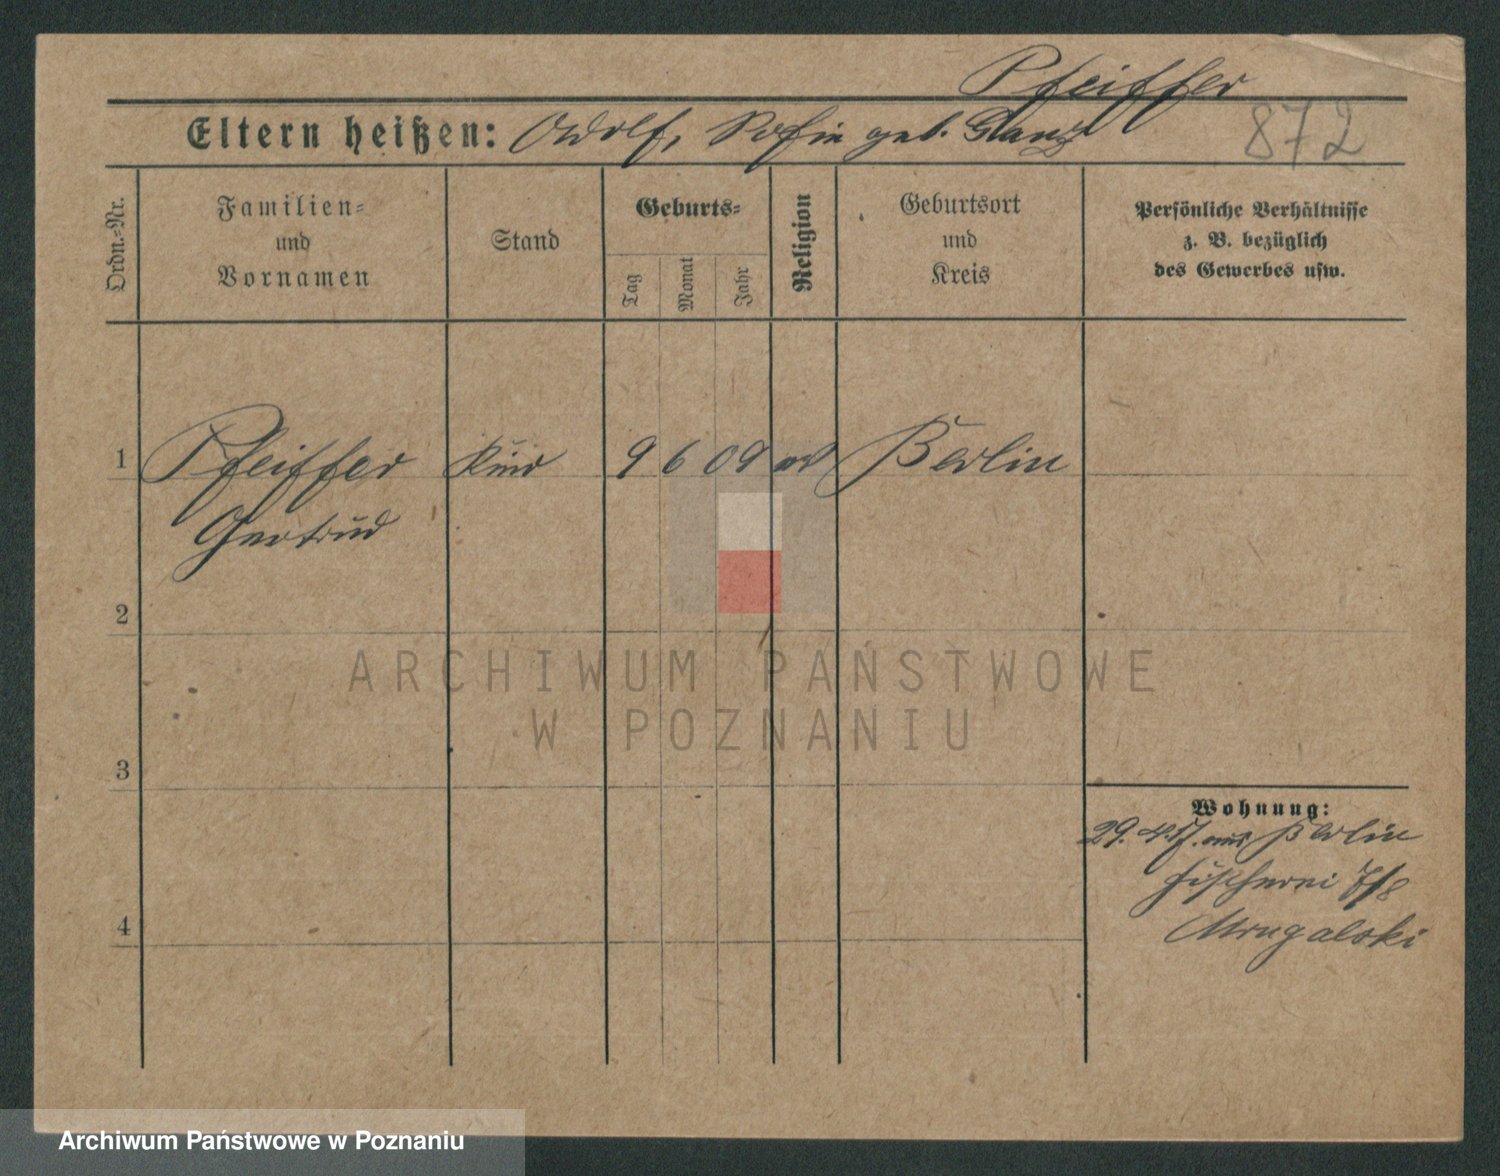 Pfeiffer
Eltern heißen: Adolf, Sofie geb. Glanz
872
Ordn.=Nr.
Familien=
und
Vornamen
Stand
Geburts=
Tag
Monat
Jahr
Religion
Geburtsort
und
Kreis
Persönliche Verhältnisse
z. B. bezüglich
des Gewerbes usw.
1 Pfeiffer Kind 9 6 09 Berlin
Gertrud
2
ARCHIWUM PAŃSTWOWE
W POZNANIU
3
Wohnung:
29. 4. 17. aus Berlin
Fischerei 7/8
Mrugalski
4
Archiwum Państwowe w Poznaniu